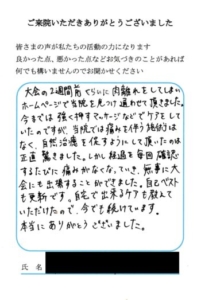 ご来院いただきありがとうございました
皆さまの声が私たちの活動の力になります
良かった点、悪かった点などお気づきのことがあれば
何でも構いませんのでお聞かせください
大会の2週間前くらいに肉離れをしてしまい
ホームページで当院を見つけ通わせて頂きました。
今までは強く押すマッサージなどでケアをして
いたのですが、当院では痛みを伴う施術は
なく、自然治癒を促すようにして頂いたのは
正直驚きました。しかし経過を毎回確認
するたびに痛みがなくなっていき、無事に大
会にも出場することができました。自己ベスト
も更新です。自宅で出来るケアも教えて
いただけたので、今でも続けています。
本当にありがとうございました。
氏名